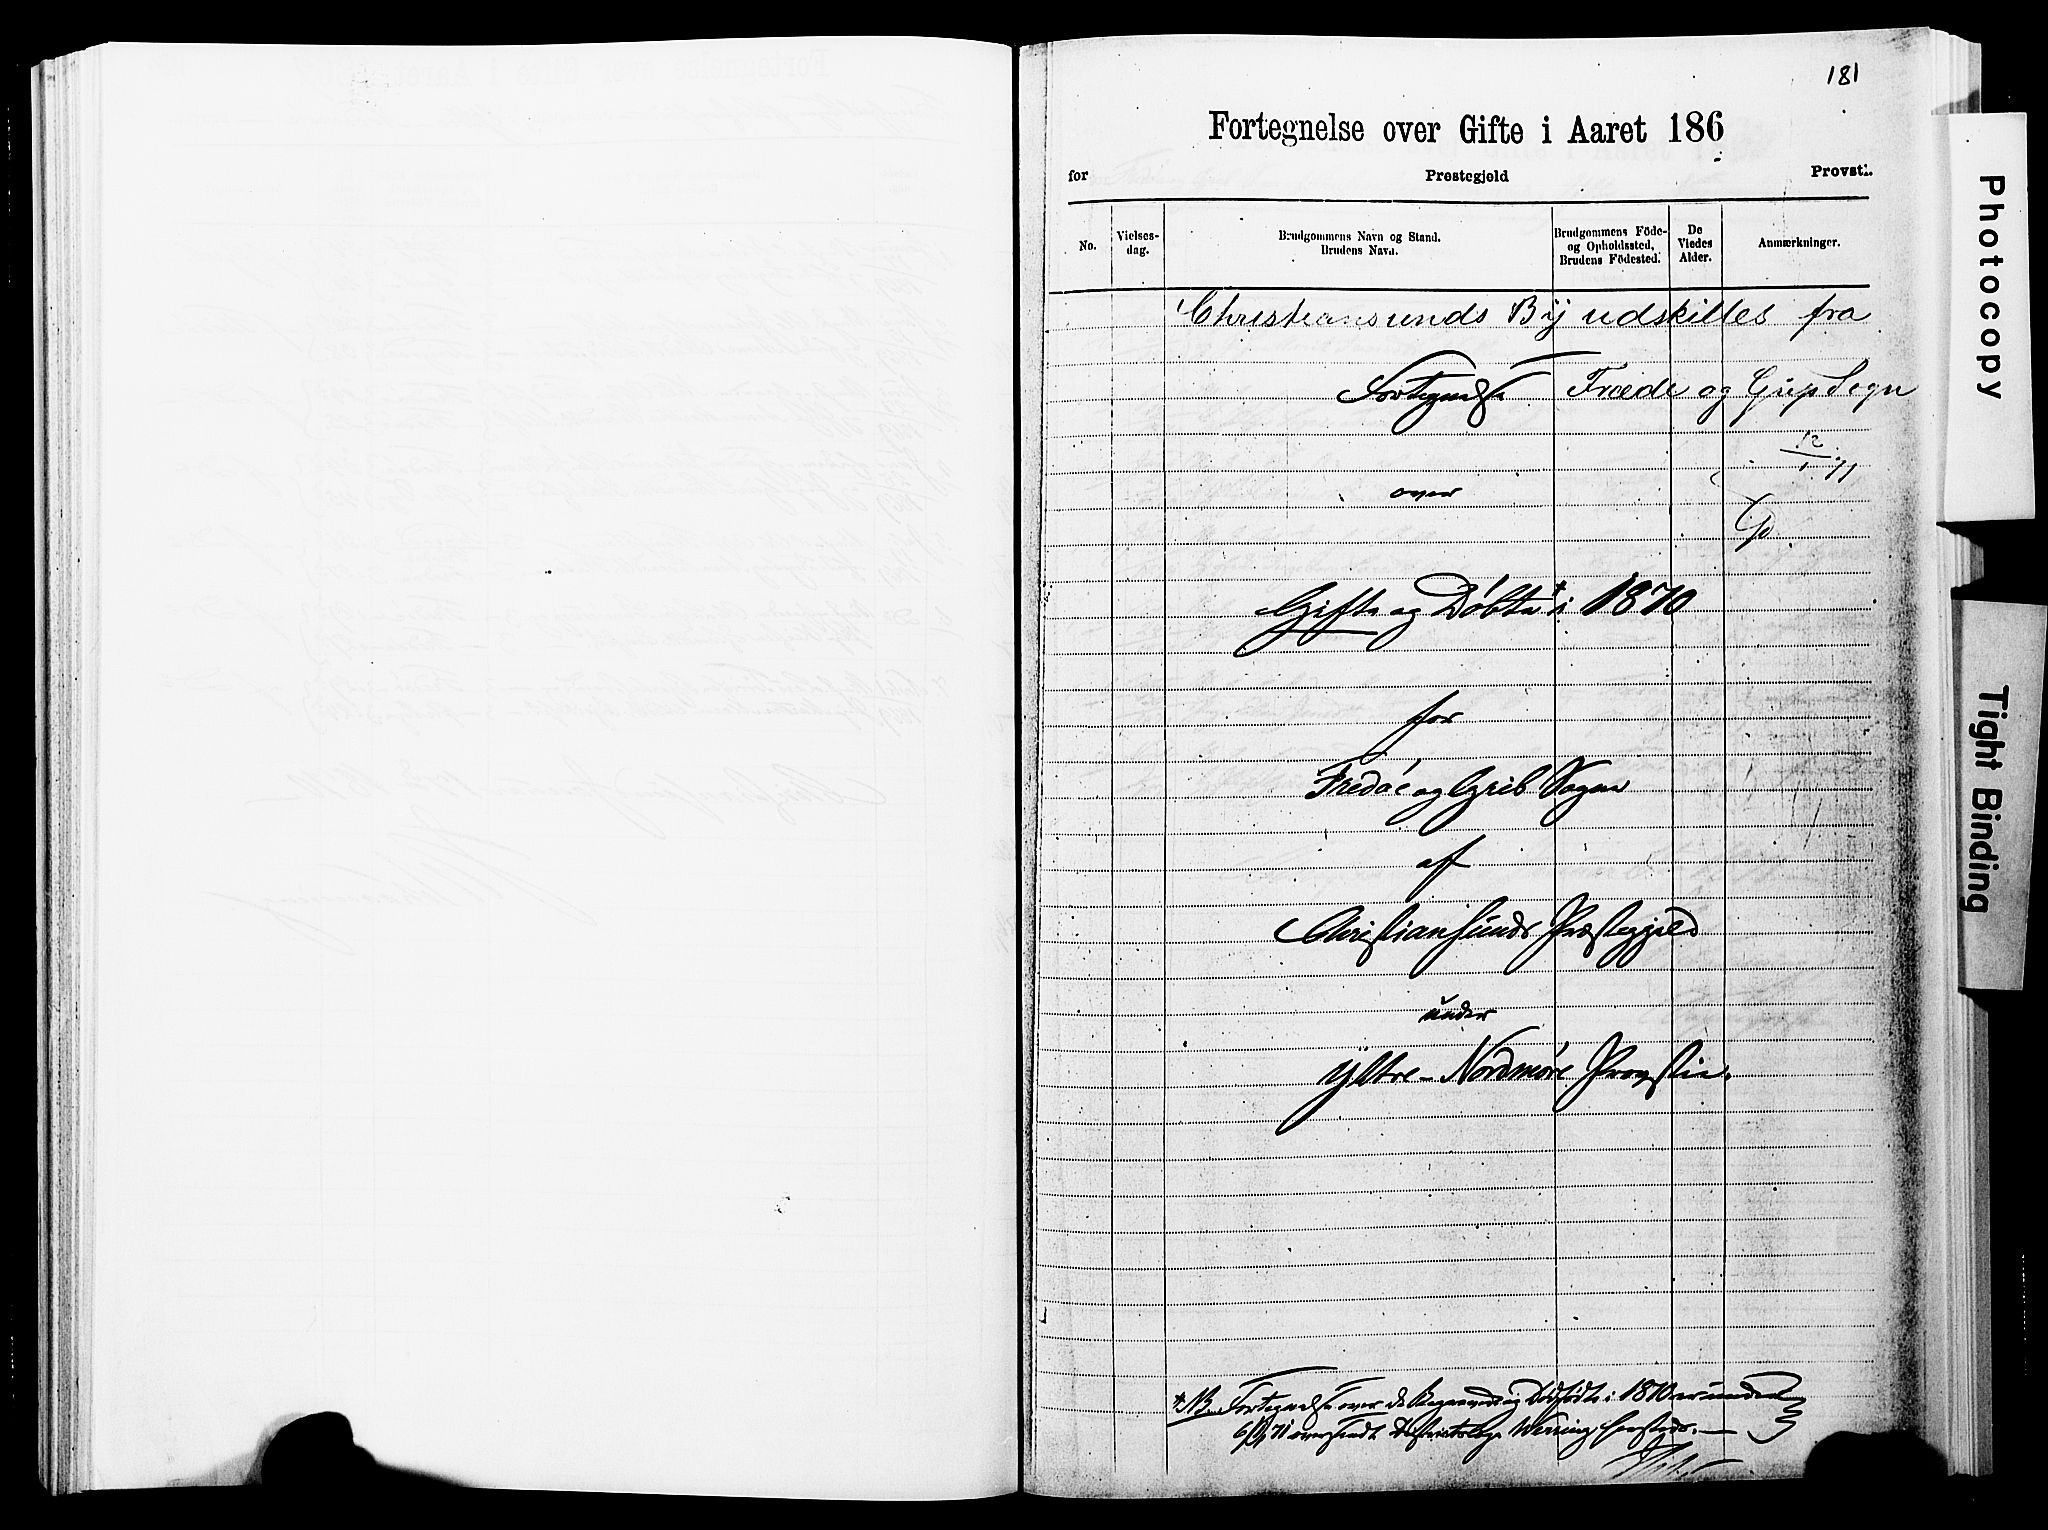 181
Fortegnelse over Gifte i Aaret 186
for Præstegjeld Provsti.
No. Vielses-dag. Brudgommens Navn og Stand. Brudens Navn. Brudgommens Föde- og Opholdssted, Brudens Födested. De Viedes Alder. Anmærkninger.
Christiansunds By udskilles fra
Fortegnelse Frædø og Grip Sogn
12/1 71
over
Gifte og Døbte + i 1870
for
Fredø og Grib Sogne
af
Christiansunds Præstegjeld
under
Yttre-Nordmøre Provstie.
+ NB. Fortegnelse over de Begravede og Dødfødte i 1870 er under
6/1 71 oversendt Districtslæge
Photocopy
Tight Binding